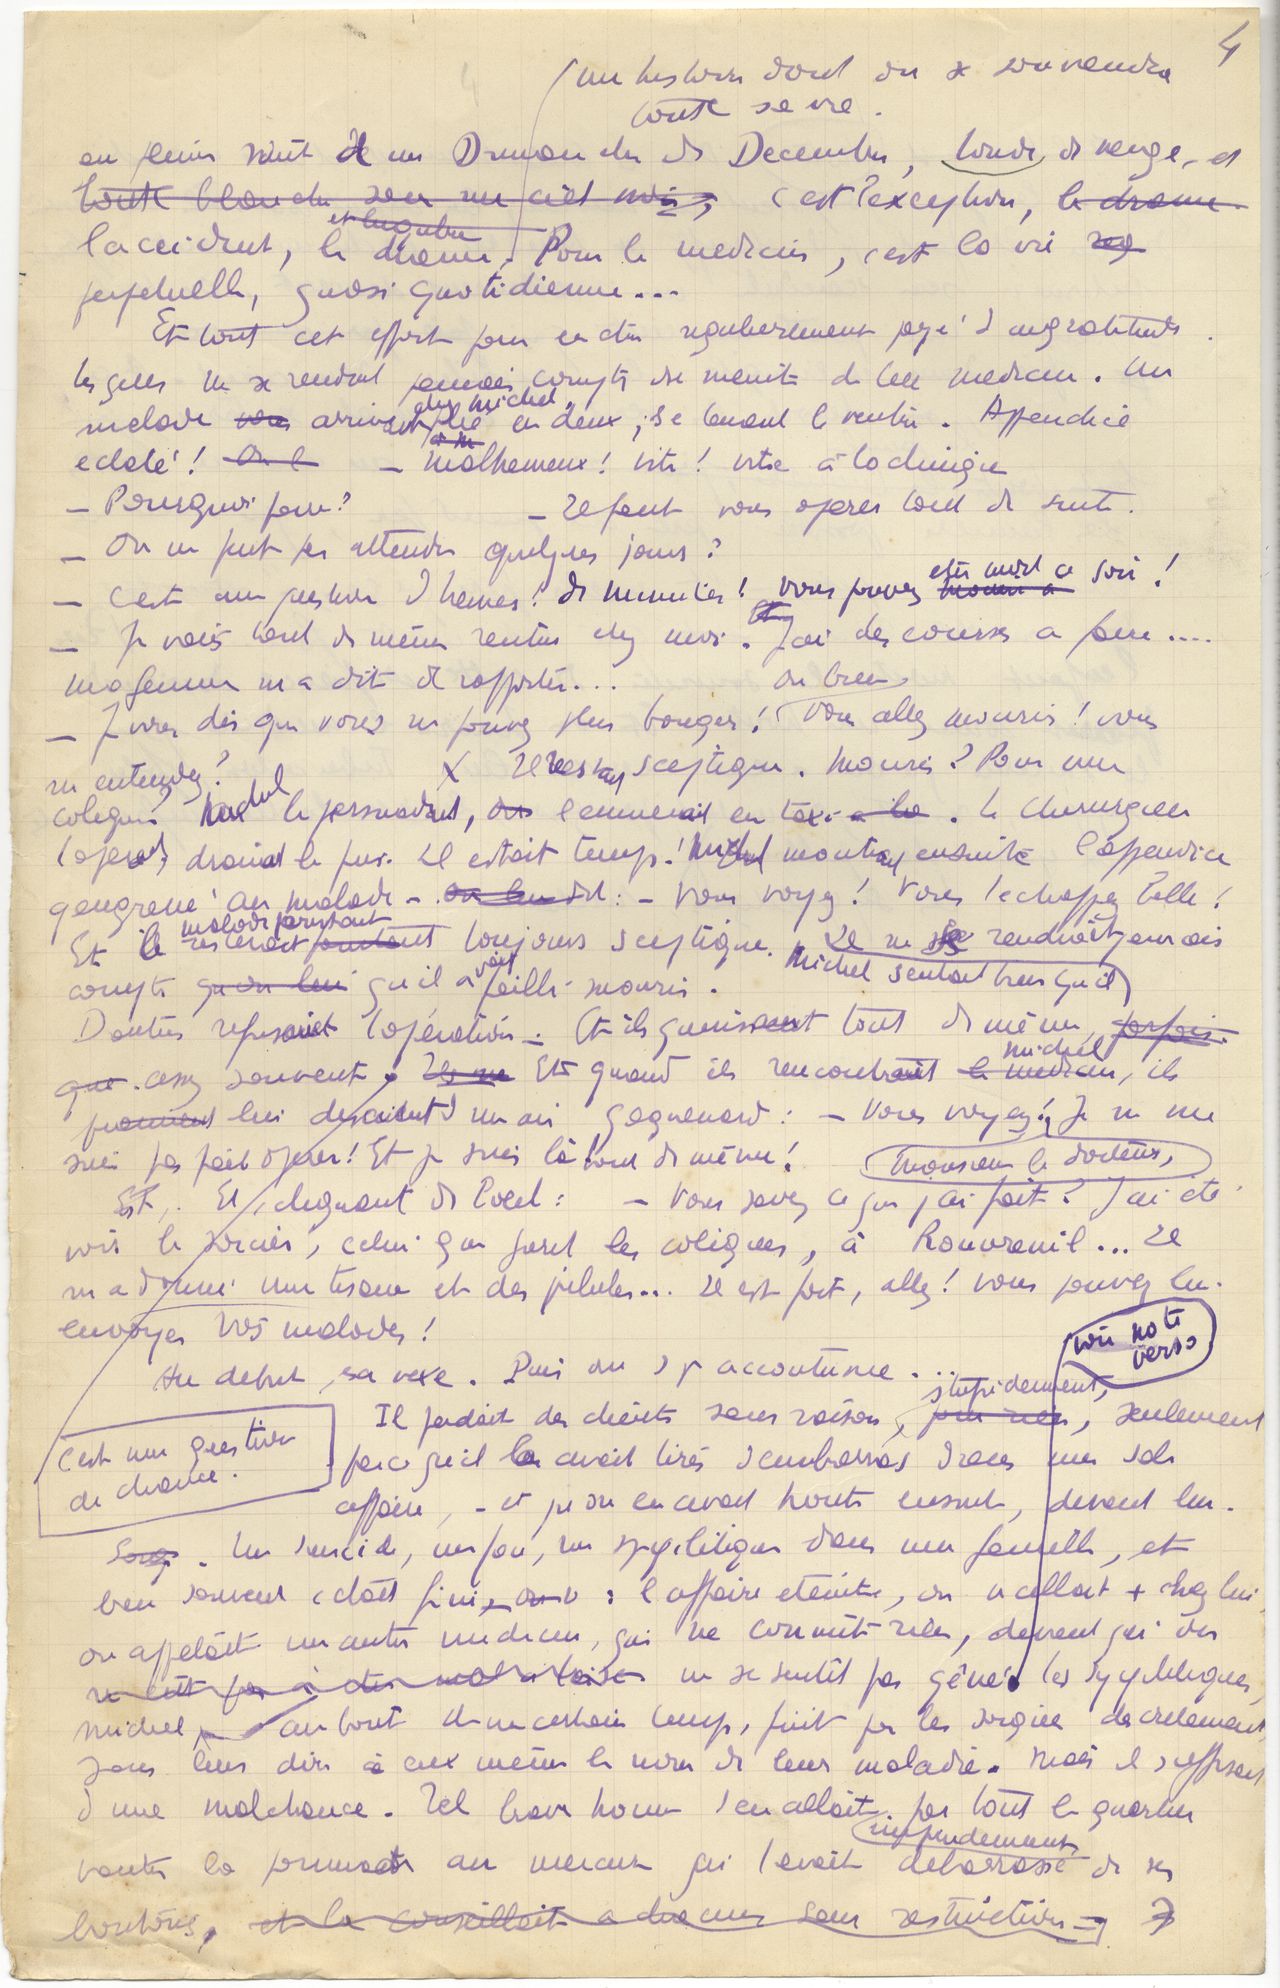 4
une histoire dont on se souviendra
toute sa vie.
en pleine nuit de un Dimanche de Decembre, lourde de neige, et
toute blanche sous un ciel noir, c'est l'exception, le drame
l'accident, le drame et lugubre. Pour le medecin, c'est la vie
perpetuelle, quasi quotidienne...
Et tout cet effort pour en etre regulierement payé d'ingratitude.
les gens ne se rendent jamais compte du merite de leur medecin. Un
malade arrivait chez Michel plié en deux, se tenant le ventre. Appendice
eclaté! On l - Malheureux! vite! vite à la clinique
- Pourquoi faire? - Il faut vous operer tout de suite.
- On ne peut pas attendre quelques jours?
- C'est une question d'heures! de minutes! Vous pouvez mourir a etre mort ce soir!
- Je vais tout de même rentrer chez moi. J'ai des courses a faire....
ma femme m'a dit de rapporter... ou bien
- Je vous dis que vous ne pouvez plus bouger! Vous allez mourir! vous
m'entendez? X Il restait sceptique. Mourir? Pour une
colique? Michel le persuadait, l'emmenait en taxi a la. Le chirurgien
l'operait, drainait le pus. Il etait temps! Michel montrait ensuite l'appendice
gangrené au malade - on leur dit: - Vous voyez! Vous l'echappez belle!
Et le malade pourtant restait pourtant toujours sceptique. Il ne se rendrait jamais
compte qu'on lui qu'il avait failli mourir. Michel sentait bien qu'il
D'autres refusaient l'opération. Et ils guerissaient tout de même, parfois.
que. assez souvent. Ils ne Et quand ils rencontraient le medecin Michel, ils
lui disaient d'un air goguenard: - Vous voyez! Je ne me
suis pas fait operer! Et je suis là tout de même! Monsieur le docteur,
Et, . Et, clignant de l'oeil: - Vous savez ce que j'ai fait? J'ai été
voir le sorcier, celui qui guerit les coliques, à Rouvreuil... Il
m'a donné une tisane et des pilules... Il est fort, allez! vous pouvez lui
envoyer vos malades!
voir note
verso
Au debut, ça vexe. Puis on s'y accoutume...
c'est une question
de chance.
Il perdait des clients sans raison, pour rien, stupidement, seulement
parce qu'il les avait tirés d'embarras dans une sale
affaire, - et qu'on en avait honte ensuite, devant lui.
Un suicide, un fou, un syphilitique dans une famille, et
bien souvent c'était fini: l'affaire eteinte, on n'allait + chez lui,
on appelait un autre medecin, qui ne connut rien, devant qui on
ne se sentît pas gêné. Les syphilitiques,
Michel, au bout d'un certain temps, finit par les soigner discretement,
sans leur dire à eux même le nom de leur maladie. Mais il suffisait
d'une malchance. Tel brave homme s'en allait par tout le quartier
vanter la pommade au mercure qui l'avait imprudemment debarrassé de ses
boutons, et la conseillait a chacun sans restriction